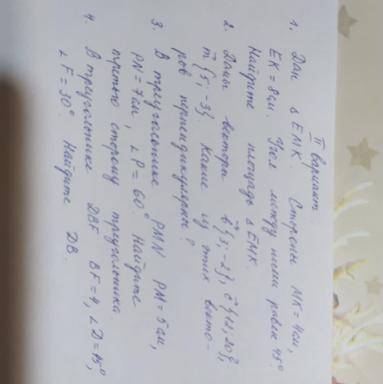 II вариант
1. Дан Δ EMK. Стороны MK = 4см,
EK = 8см. Угол между ними равен 45°
Найдите площадь Δ EMK.
2. Даны вектора b⃗{3; -2}, c⃗{12; 20},
m⃗{5; -3}. Какие из этих векто-
ров перпендикулярны?
3. В треугольнике PMN PM = 5см,
PN = 7см, ∠P = 60°. Найдите
третью сторону треугольника.
4. В треугольнике DBF BF = 4, ∠D = 45°,
∠F = 30°. Найдите DB.